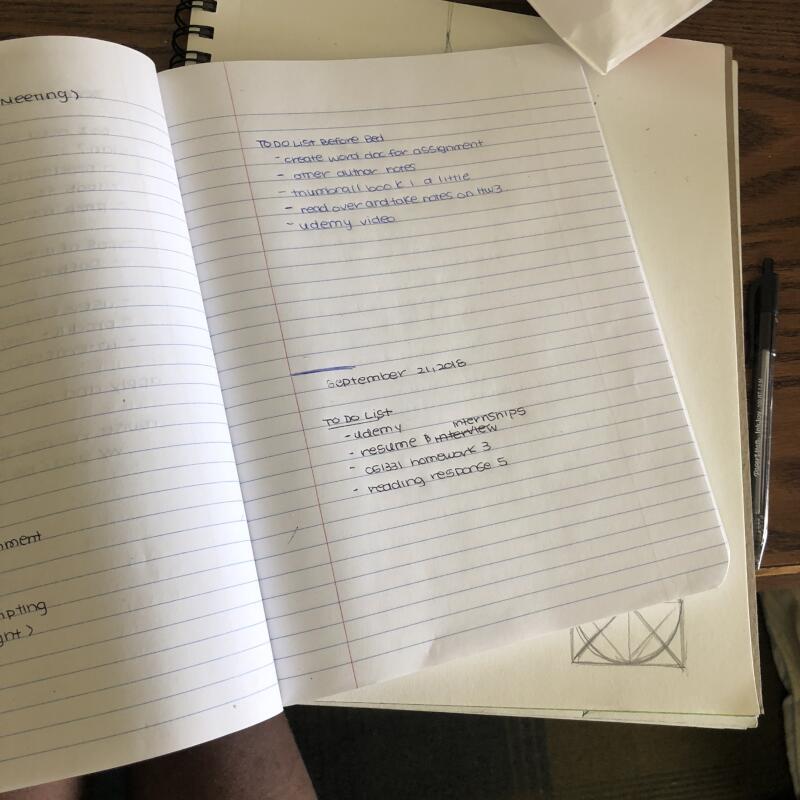 Meeting)
ment
pting
ght)
TO DO List Before Bed
- create word doc for assignment
- other author notes
- thumbnail book 1 a little
- read over and take notes on HW3
- udemy video
September 21, 2018
TO DO List
- udemy
- resume & interview internships
- CS1331 homework 3
- reading response 5